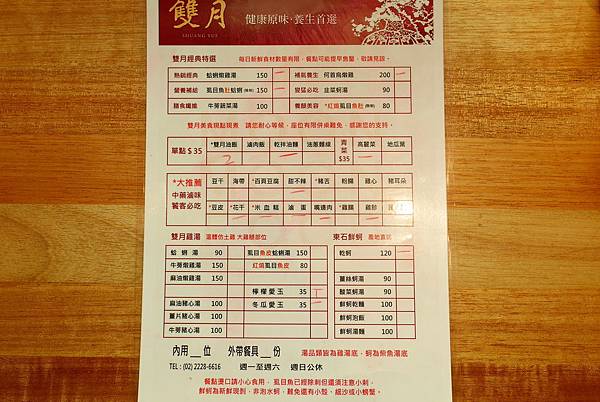 雙月
SHUANG YUE
健康原味·養生首選
雙月經典特選 每日新鮮食材數量有限，餐點可能提早售罄，敬請見諒。
熱銷經典 蛤蜊燉雞湯 150 補氣養生 何首烏燉雞 200
營養補給 虱目魚肚蛤蜊 150 變猛必吃 韭菜蚵湯 90
膳食纖維 牛蒡蔬菜湯 100 養顏美容 *紅燒虱目魚肚 80
雙月美食現點現煮 請您耐心等候，座位有限併桌難免，感謝您的支持。
單點$35 *雙月油飯 滷肉飯 乾拌油麵 油蔥麵線 青菜$35 高麗菜 地瓜葉
2
*大推薦 中藥滷味 饕客必吃
豆干 海帶 *百頁豆腐 甜不辣 *豬舌 粉腸 雞心 豬耳朵
*豆皮 *花干 *米血糕 滷蛋 嘴邊肉 *雞腸 雞胗
雙月雞湯 湯體仿土雞 大雞腿部位
蛤蜊湯 90 虱目魚皮蛤蜊湯 150
牛蒡燉雞湯 150 紅燒虱目魚皮 80
麻油燉雞湯 150
檸檬愛玉 35
麻油豬心湯 100 冬瓜愛玉 35
薑片豬心湯 100
牛蒡豬心湯 100
東石鮮蚵 產地直送
乾蚵 120
薑絲蚵湯 90
酸菜蚵湯 90
鮮蚵乾麵 100
鮮蚵泡飯 100
鮮蚵湯麵 100
內用__位 外帶餐具__份 湯品類皆為雞湯底，蚵為柴魚湯底
TEL：(02) 2228-6616 週一至週六 週日公休
餐點燙口請小心食用，虱目魚已經除刺但還須注意小刺，
鮮蚵為新鮮現剝，非泡水蚵，難免還有小殼、細沙或小螃蟹。